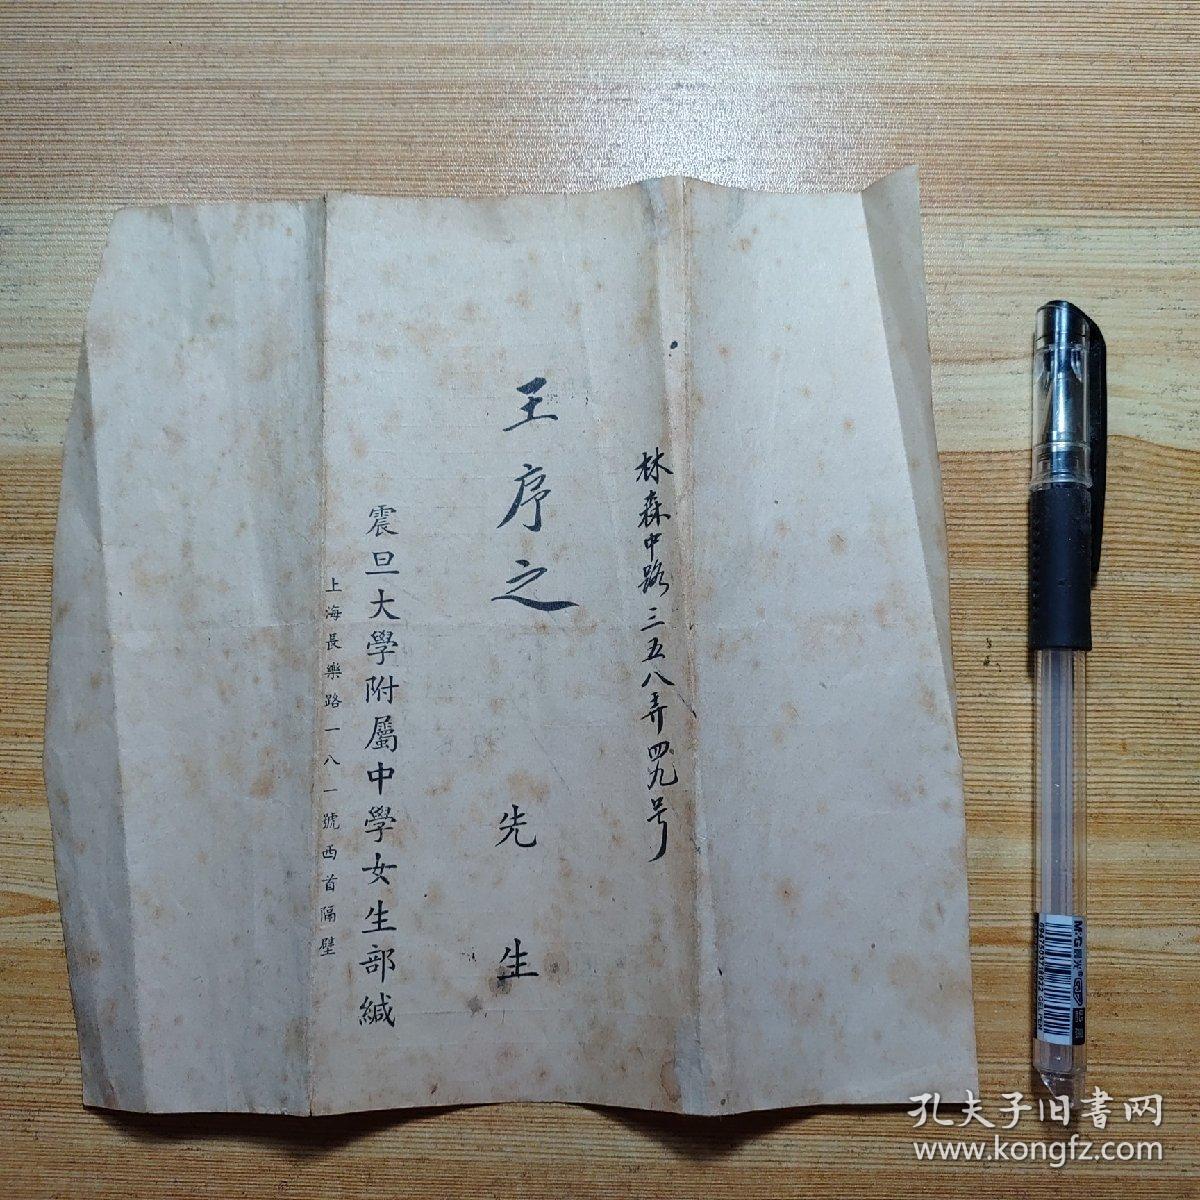 林森中路三五八弄四九号
王序之 先生
震旦大學附屬中學女生部緘
上海長樂路一八一號西首隔壁
M&G
孔夫子旧書网
www.kongfz.com